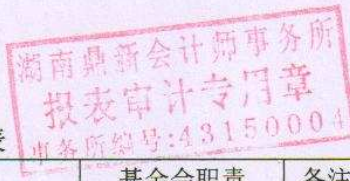 湖南鼎新会计师事务所
报表审计专用章
事务所编号:43150004
表
基金会职责
备注